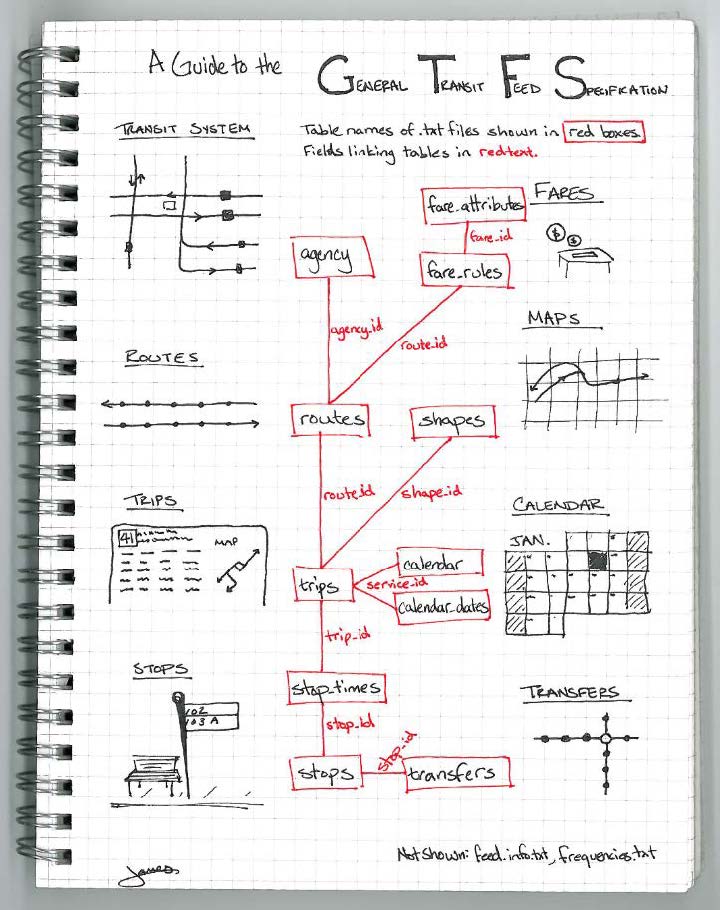 A Guide to the GENERAL TRANSIT FEED SPECIFICATION
TRANSIT SYSTEM
Table names of .txt files shown in red boxes.
Fields linking tables in red text.
FARES
fare_attributes
fare_id
agency
fare_rules
agency_id
route_id
MAPS
ROUTES
routes
shapes
route_id
shape_id
TRIPS
41
MAP
CALENDAR
JAN.
calendar
trips
service_id
calendar_dates
trip_id
STOPS
102
103 A
stop_times
TRANSFERS
stop_id
stop_id
stops
transfers
Not Shown: feed_info.txt, frequencies.txt
James